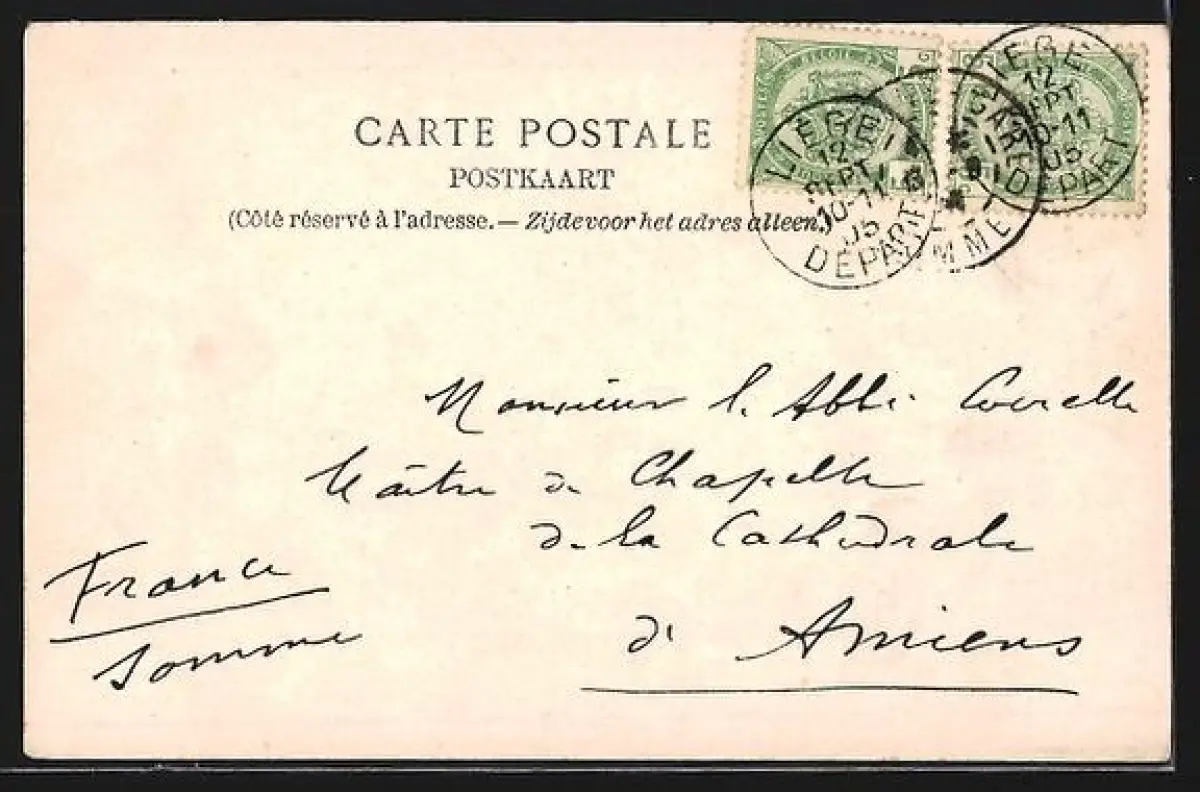 CARTE POSTALE
POSTKAART
(Côté réservé à l'adresse. — Zijde voor het adres alleen.)
BELGIE
LIÉGE 1
12
SEPT
10-11
05
DÉPART
LIÉGE
12
SEPT
10-11
05
DÉPART
GARE D
MME
Monsieur l'Abbé
Maître de Chapelle
de la Cathédrale
d'Amiens
France
Somme